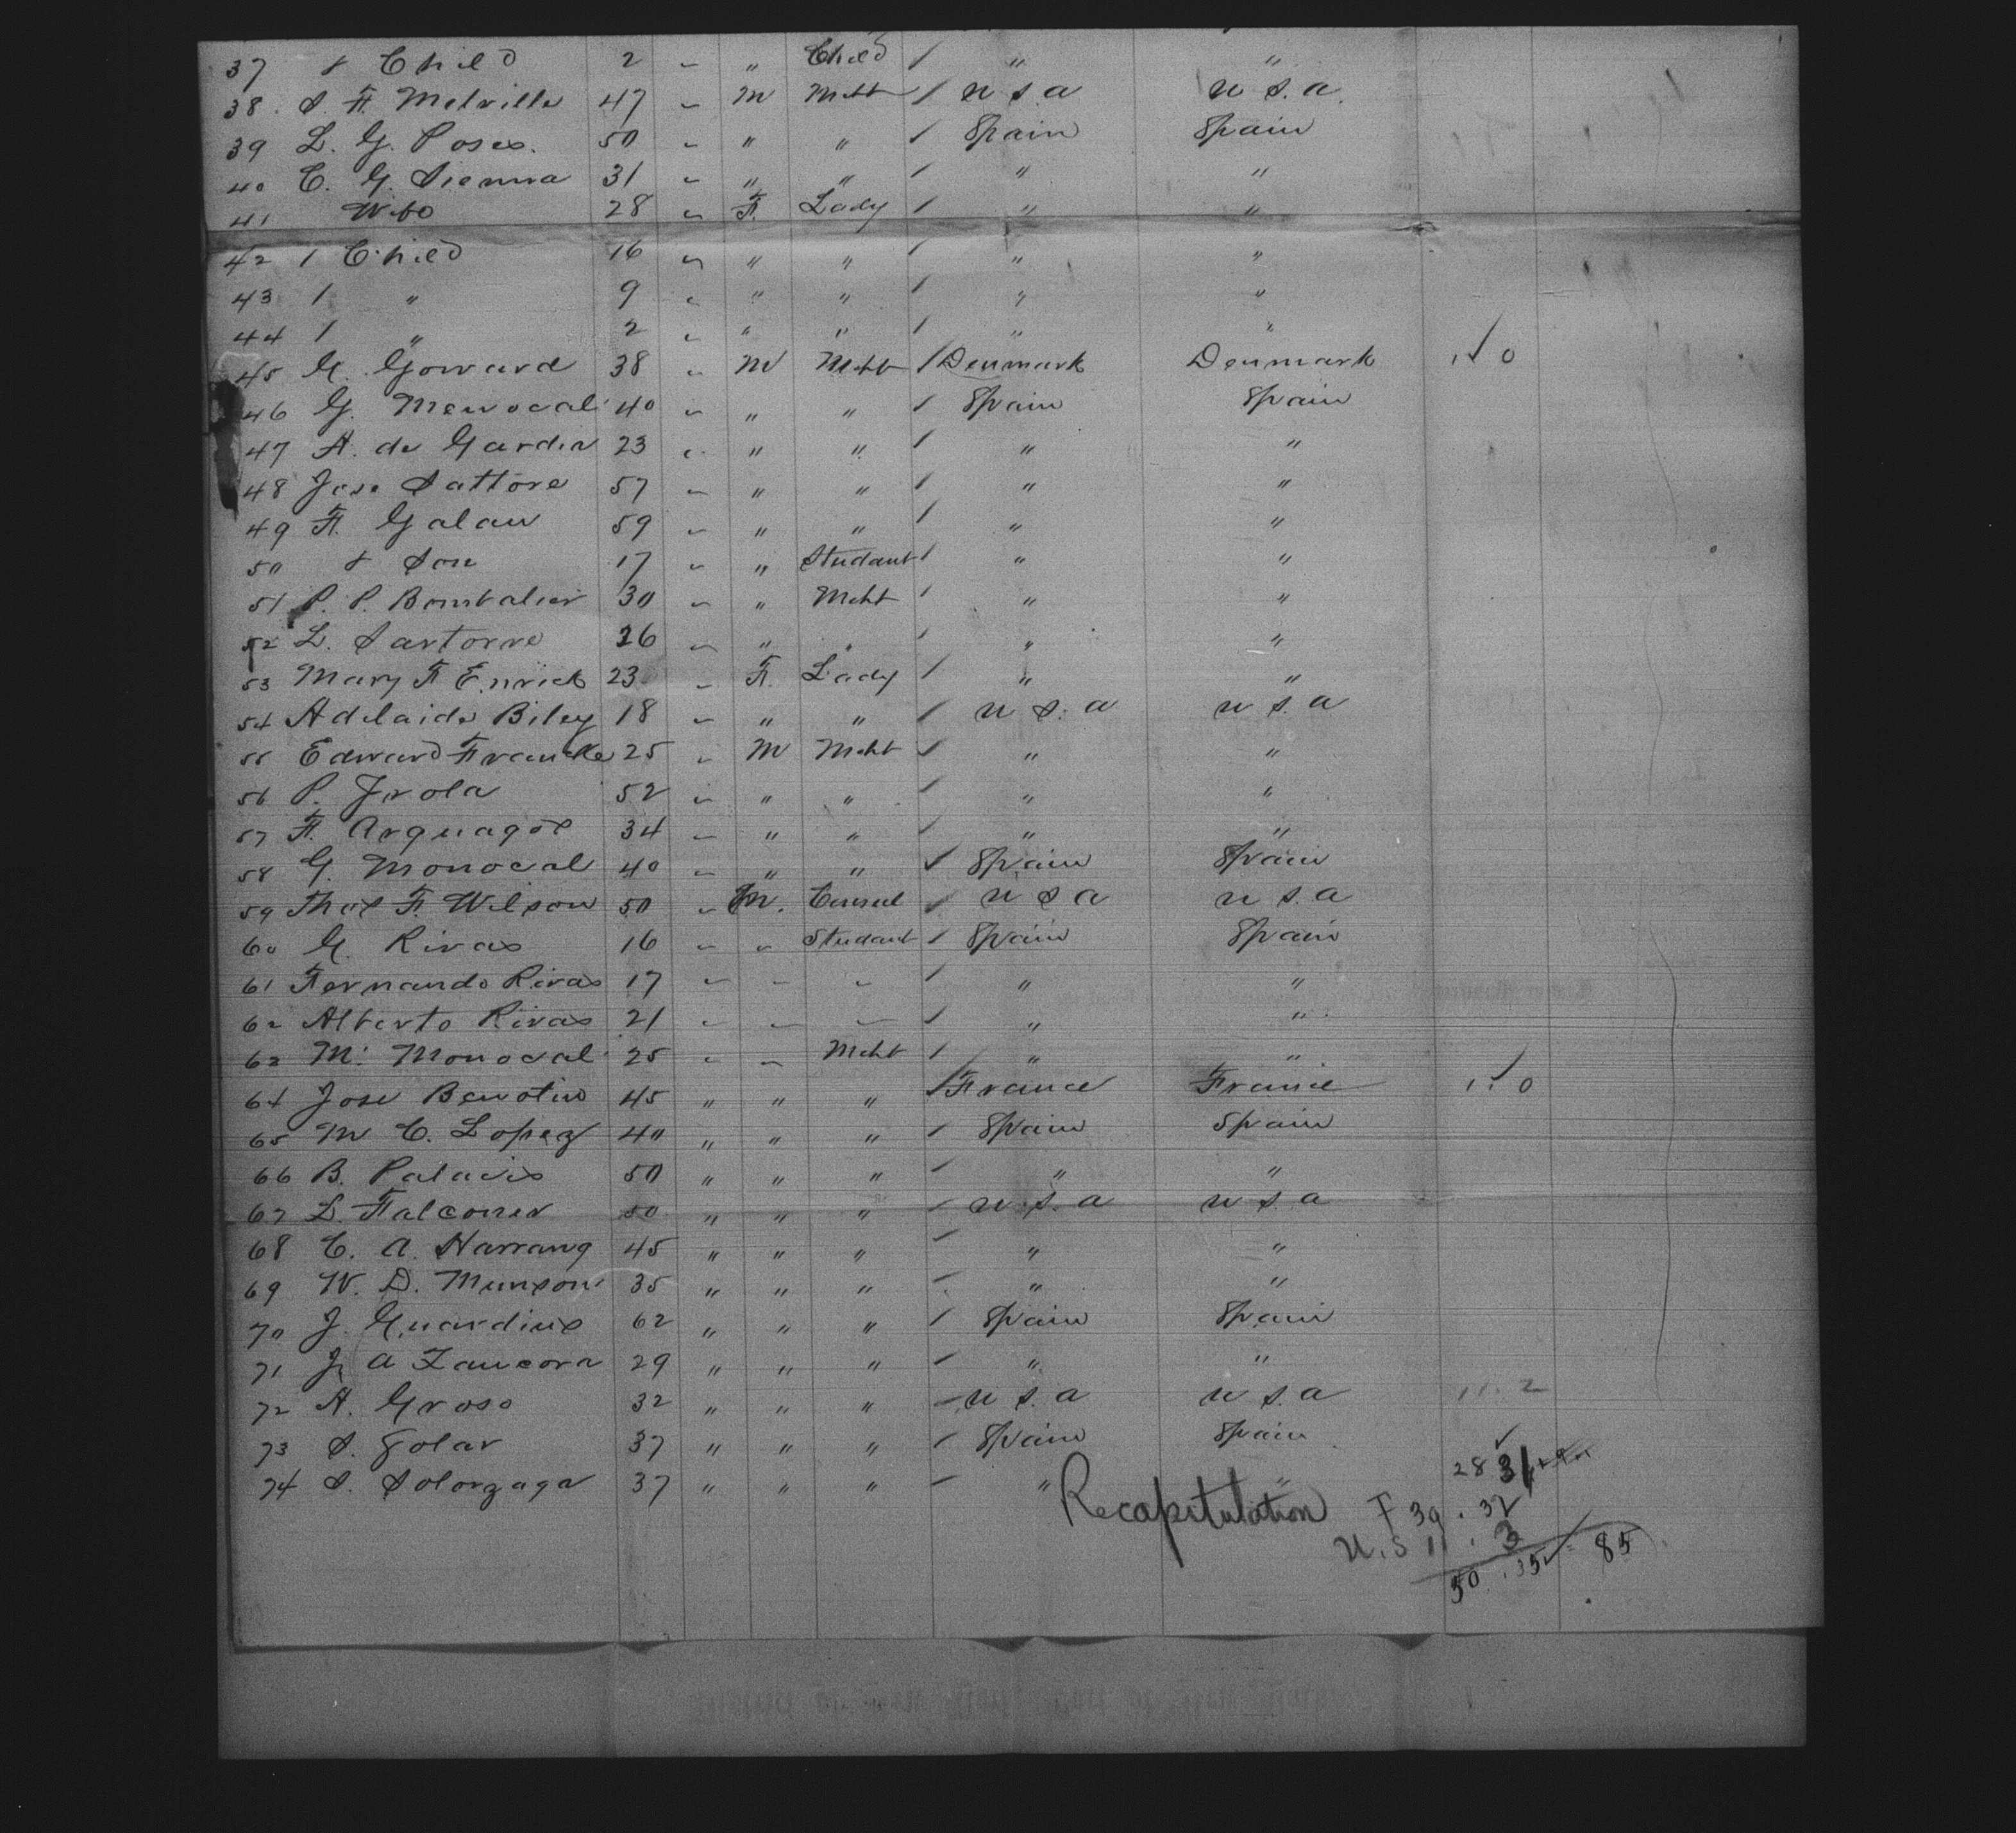 37 & Child 2 " " Child / " "
38. S. F. Melville 47 " M Mcht / U S. a U S. a.
39 L. G. Poses. 50 " " " / Spain Spain
40 C. G. Sienna 31 " " " / " "
41 Wife 28 " F. Lady / " "
42 1 Child 16 " " " / " "
43 1 " 9 " " " / " "
44 1 " 2 " " " / " "
45 G. Goward 38 " M Mcht / Denmark Denmark 1. 0
46 G. Menocal 40 " " " / Spain Spain
47 A. de Garden 23 " " " / " "
48 Jose Sattore 57 " " " / " "
49 F. Galan 59 " " " / " "
50 & Son 17 " " Studant / " "
51 P. P. Bombalier 30 " " Mcht / " "
52 L. Sartorre 26 " " " / " "
53 Mary F Enrick 23 " F. Lady / " "
54 Adelaide Biley 18 " " " / U S. a U S. a
55 Edward Francke 25 " M Mcht / " "
56 P. Jrola 52 " " " / " "
57 F. Arquagos 34 " " " / " "
58 G. Monocal 40 " " " / Spain Spain
59 Thos F. Wilson 50 " M. Consul / U S a U S. a
60 G. Rivas 16 " " Studant / Spain Spain
61 Fernando Rivas 17 " " " / " "
62 Alberto Rivas 21 " " " / " "
63 M. Monocal 25 " " Mcht / " "
64 Jose Benotin 45 " " " / France France 1. 0
65 M C. Lopez 40 " " " / Spain Spain
66 B. Palacis 50 " " " / " "
67 L. Falconer 50 " " " / U. S. a U S. a
68 C. A. Harrang 45 " " " / " "
69 W. D. Munson 35 " " " / " "
70 J. Guardius 62 " " " / Spain Spain
71 J. A Zancora 29 " " " / " "
72 A. Groso 32 " " " / U S. a U S. a 11. 2
73 S. Golar 37 " " " / Spain Spain
74 S. Solorzaga 37 " " " / " "
28 31
Recapitulation F 39. 32
U. S 11. 3
50. 35 = 85